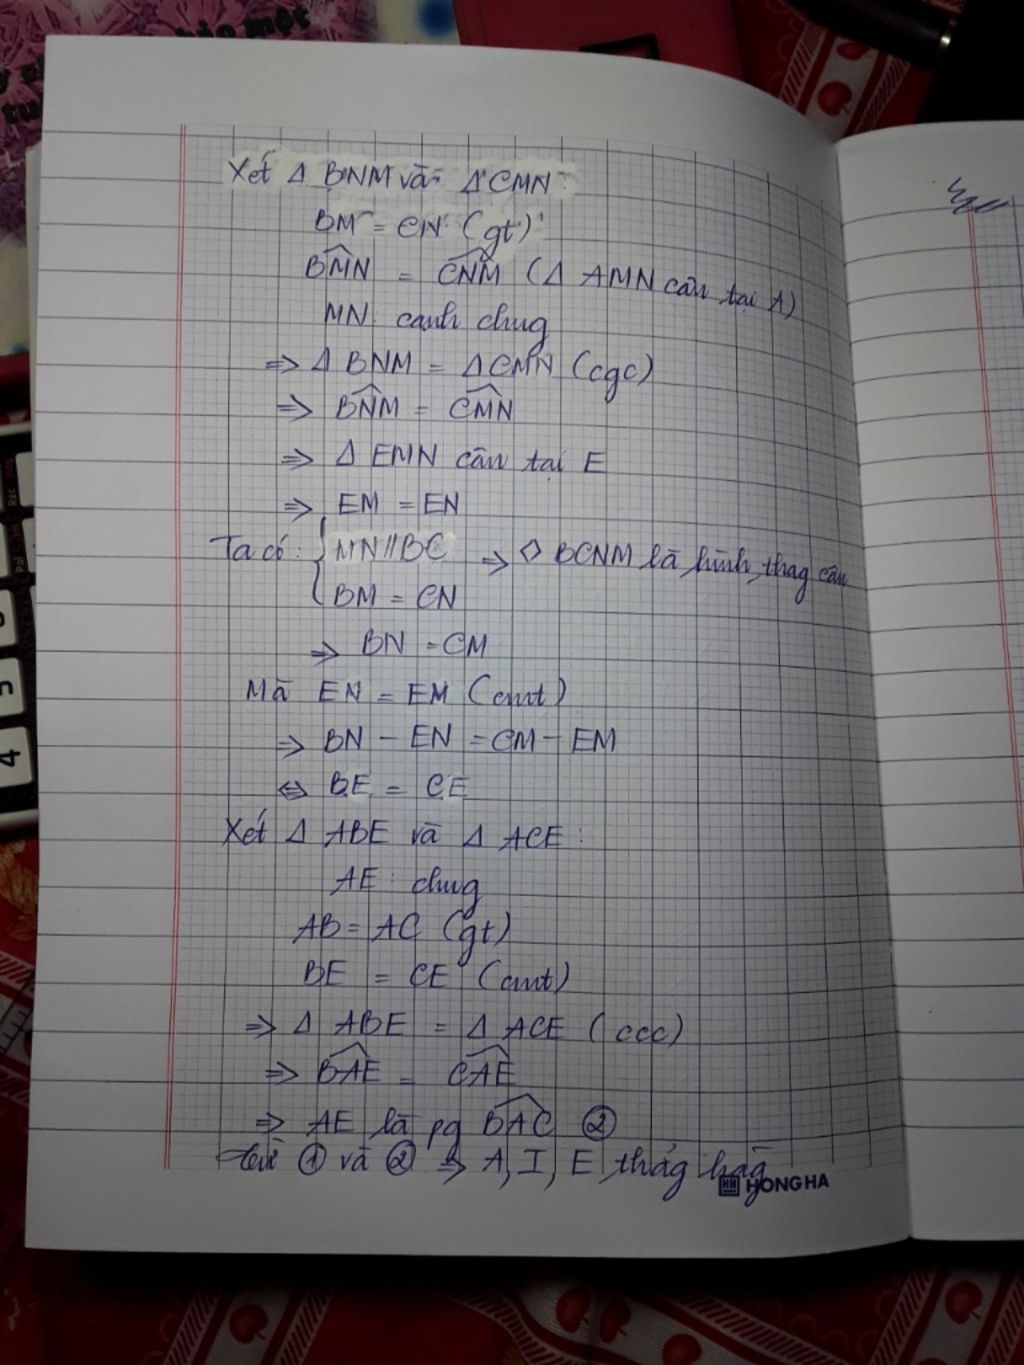 bảo một
Xét Δ BNM và Δ CMN:
BM = CN (gt)
BMN = CNM (Δ AMN cân tại A)
MN: cạnh chug
=> Δ BNM = Δ CMN (cgc)
=> BNM = CMN
=> Δ EMN cân tại E
=> EM = EN
Ta có: { MN // BC
BM = CN => ◇ BCNM là hình thag cân
=> BN = CM
Mà EN = EM (cmt)
=> BN - EN = CM - EM
<=> BE = CE
Xét Δ ABE và Δ ACE:
AE: chug
AB = AC (gt)
BE = CE (cmt)
=> Δ ABE = Δ ACE (ccc)
=> BAE = CAE
=> AE là pg BAC ②
Từ ① và ② => A, I, E thẳg hàg
HONG HA
5
4